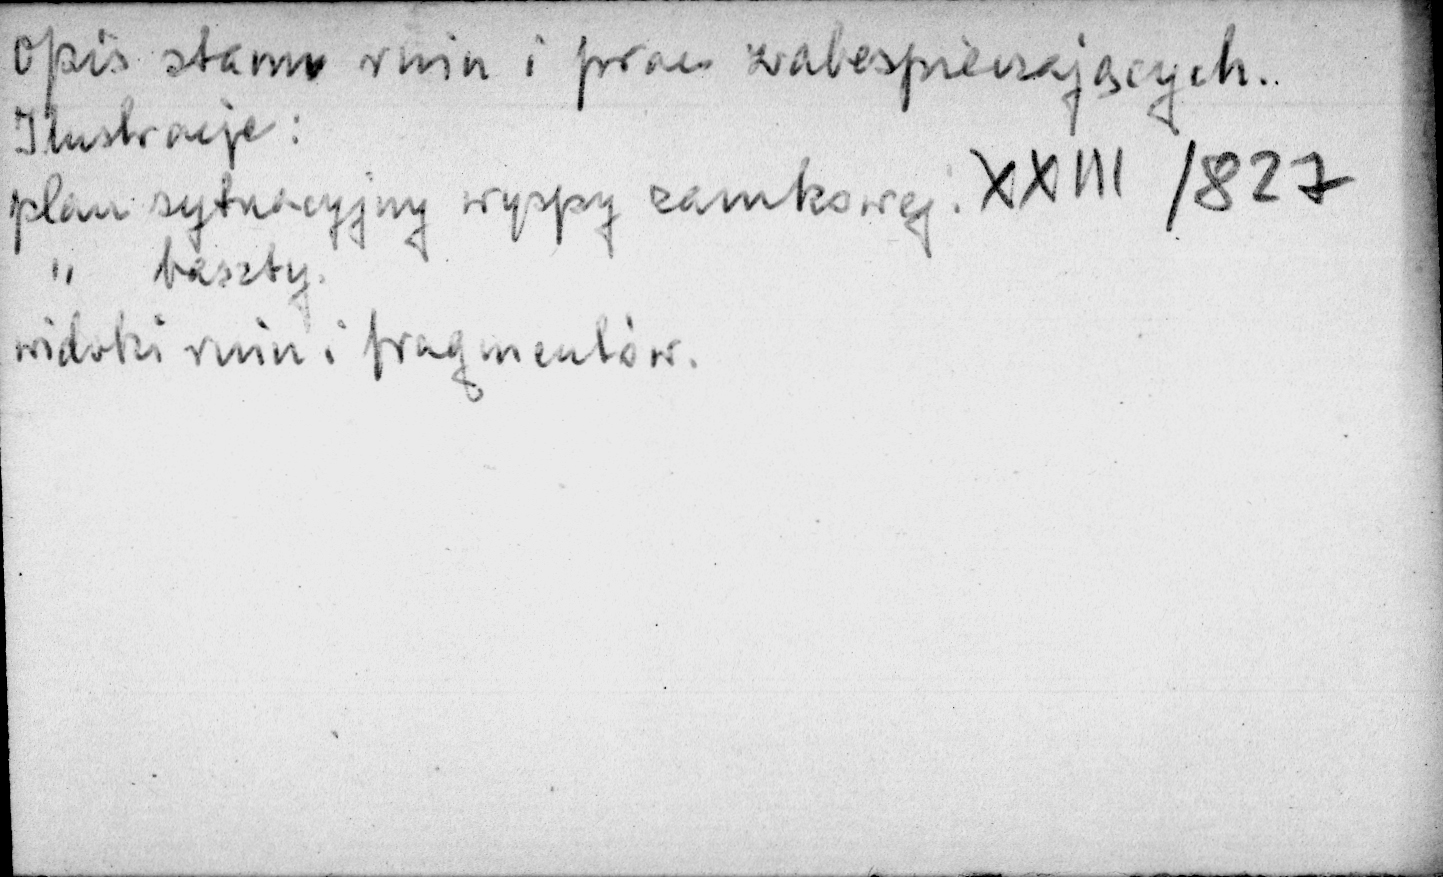 Opis stanu ruin i prac zabespieczających..
Ilustracje:
plan sytuacyjny wyspy zamkowej. XXIII /827
" baszty.
widoki ruin i fragmentów.